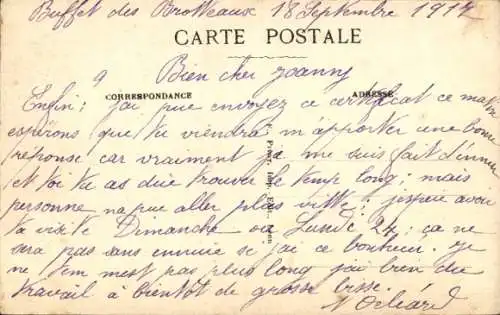 Buffet des Brotteaux 18 Septembre 1917
CARTE POSTALE
9 Bien cher Joanny
CORRESPONDANCE ADRESSE
Enfin! j'ai pue envoyez ce certificat ce matin
esperons que tu viendra m'apporter une bonne
réponse car vraiment je me suis fait d'ennui
et toi tu as due trouver le temp long; mais
personne na pue aller plus vitte; j'espère avoir
ta visite Dimanche ou Lundi 24; ça ne
sera pas sans envie se j'ai ce bonheur. Je
ne t'em mest pas plus long j'ai bien du
travail à bientôt de grosse bise.